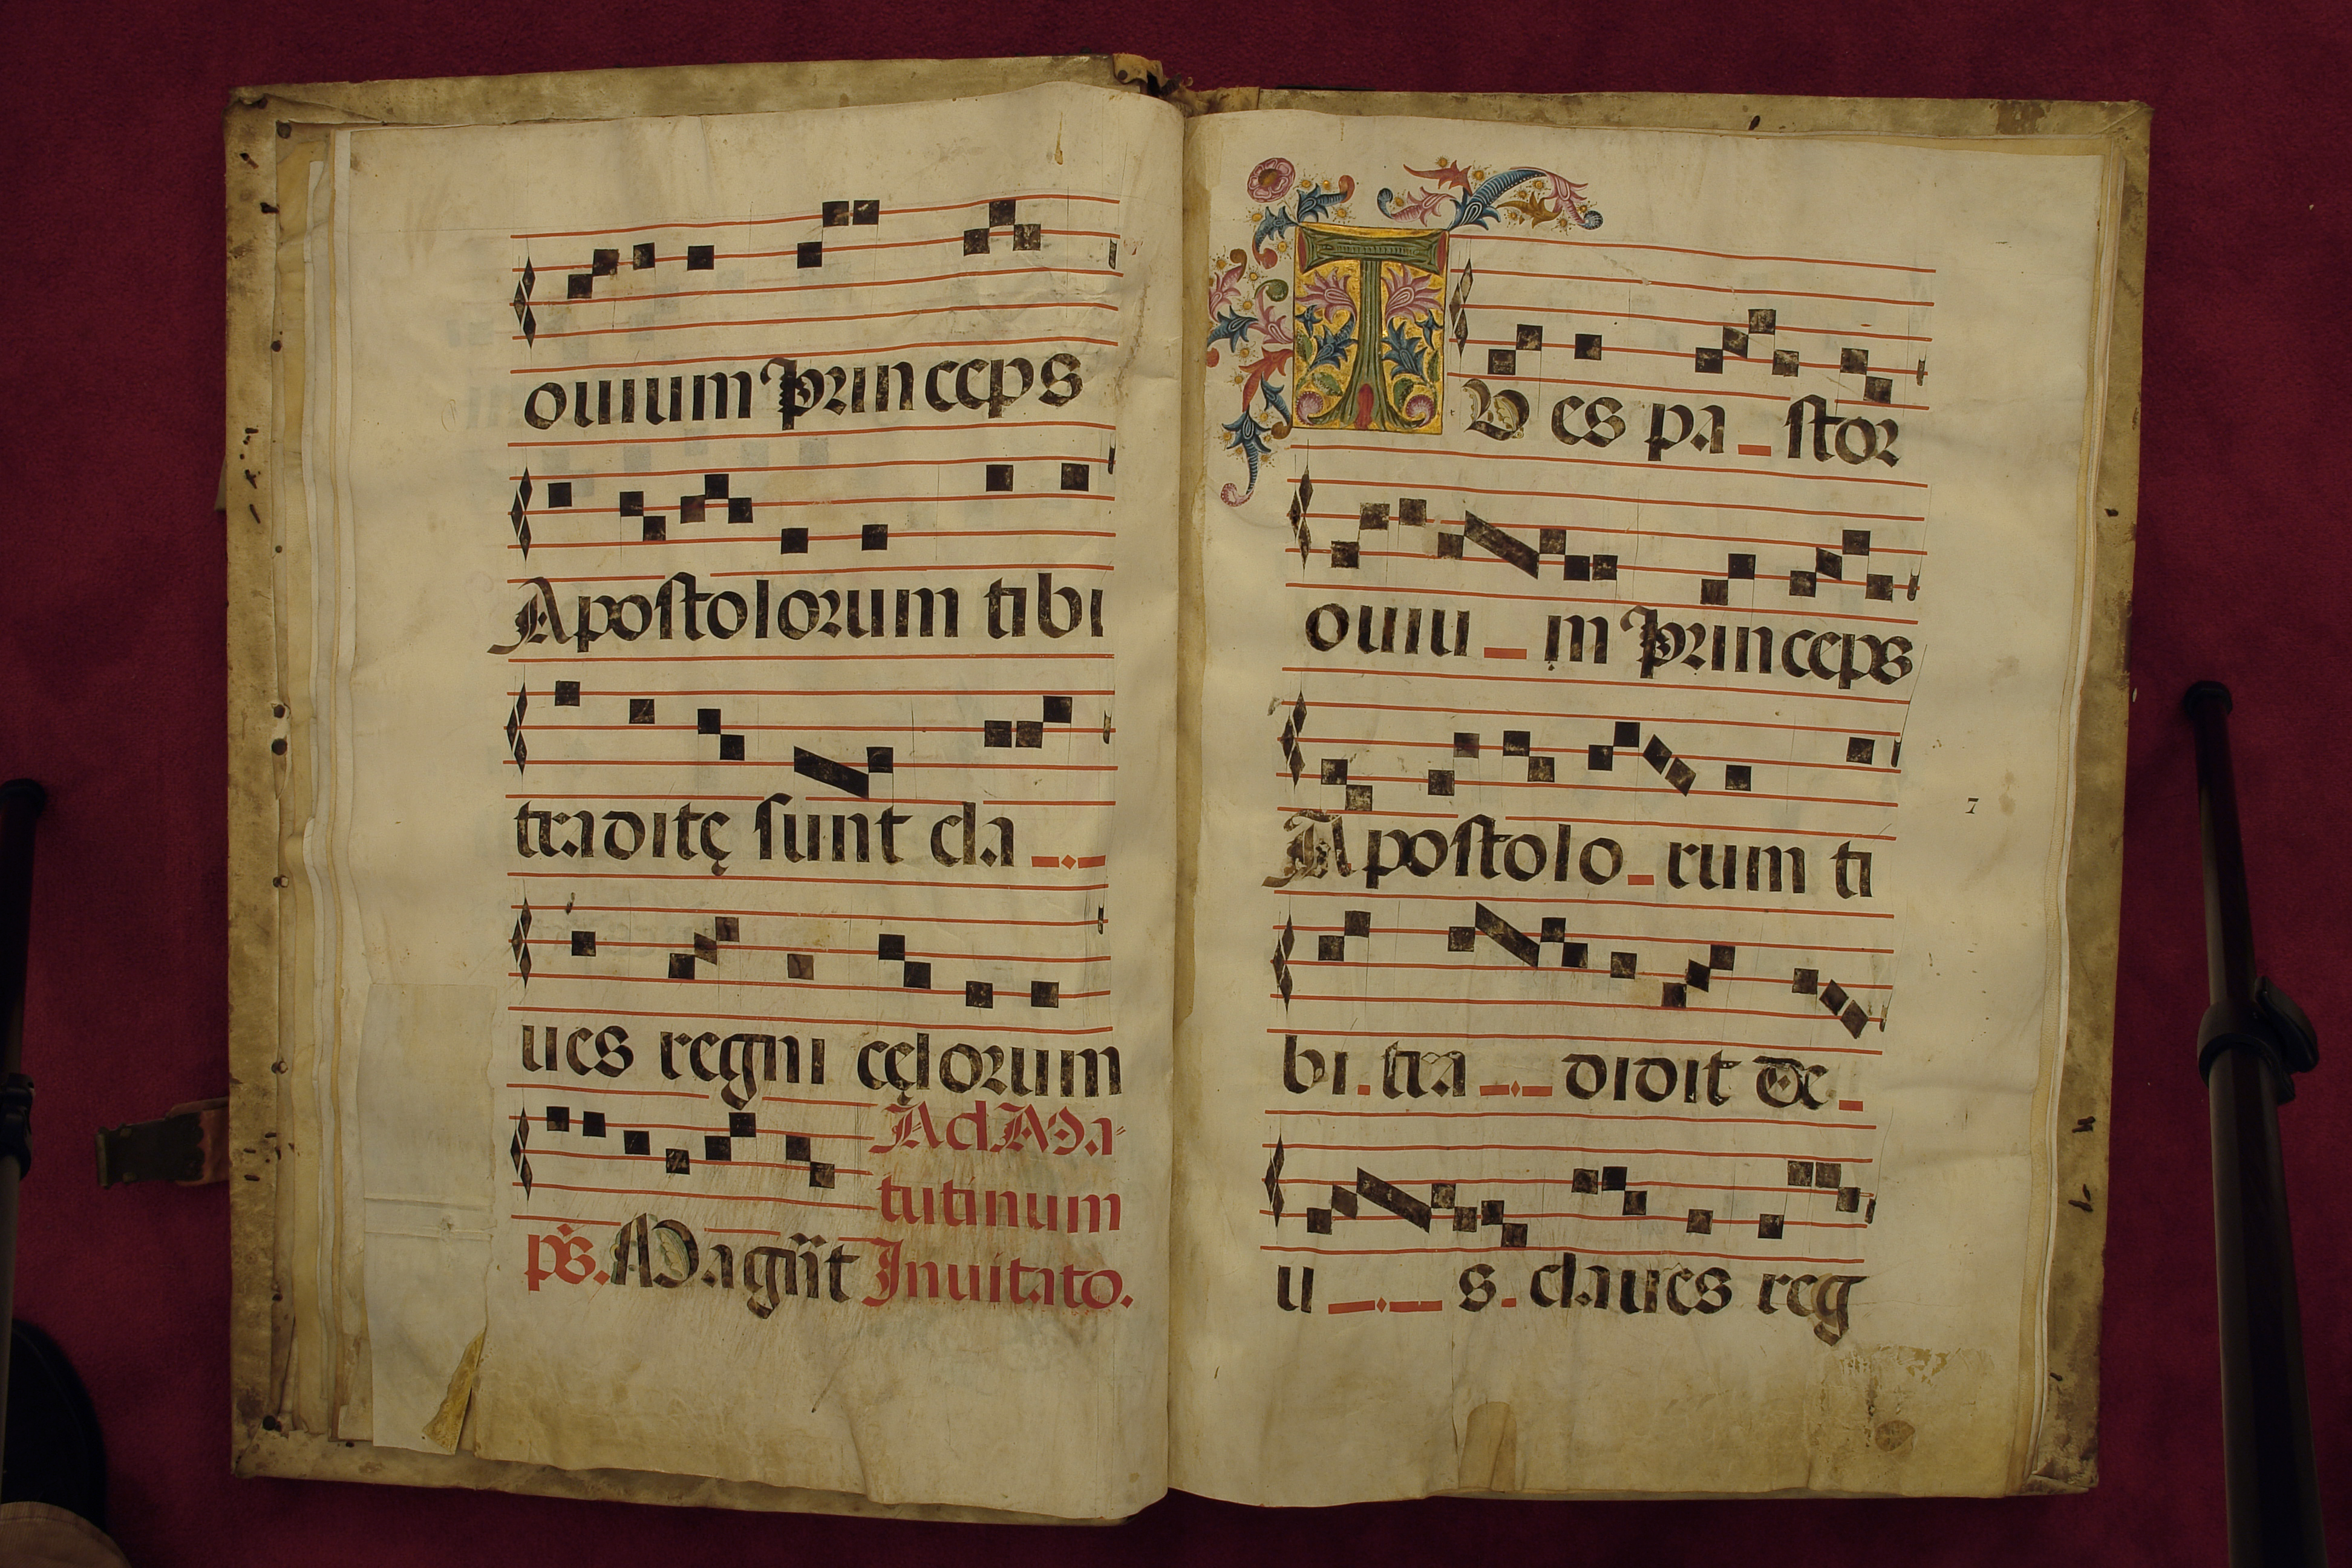 ouium Princeps
Apostolorum tibi
traditę sunt cla
ues regni cęlorum
Ad Ma-
tutinum
ps. Magnt Inuitato.
TV es pa - stor
ouiu - m Princeps
Apostolo - rum ti
bi. tra - . - didit De -
u - . - s. claues reg
7